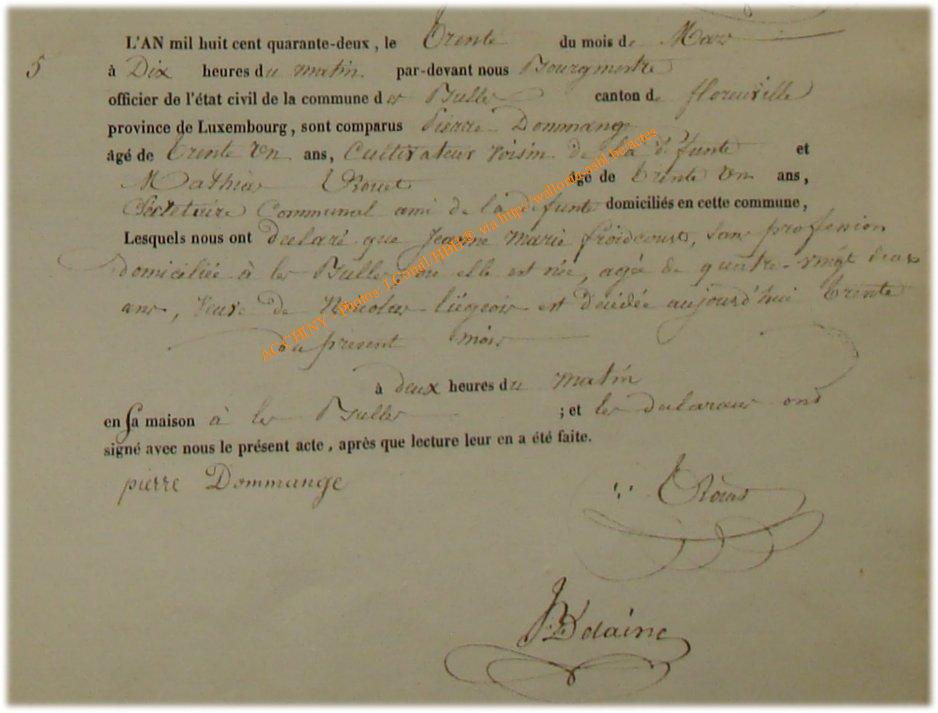 5
L'AN mil huit cent quarante-deux, le Trente du mois de Mars
à Dix heures du matin. par-devant nous Bourgmestre
officier de l'état civil de la commune des Bulles canton de florenville
province de Luxembourg, sont comparus Pierre Dommange
âgé de trente un ans, Cultivateur voisin de la défunte et
Mathias âgé de trente un ans,
Secretaire Communal ami de la défunte domiciliés en cette commune,
Lesquels nous ont déclaré que Jeanne Marie froidcourt, sans profession
domiciliée à les Bulles ou elle est née, agée de quatre-vingt deux
ans, veuve de Nicolas liégeois est décédée aujourd'hui trente
du présent mois
à deux heures du matin
en sa maison à les Bulles ; et les déclarans ont
signé avec nous le présent acte, après que lecture leur en a été faite.
pierre Dommange
Delaine
ACCHINY - Photos J.Conil/HBH® via http://wallonia.asbl.be/actes